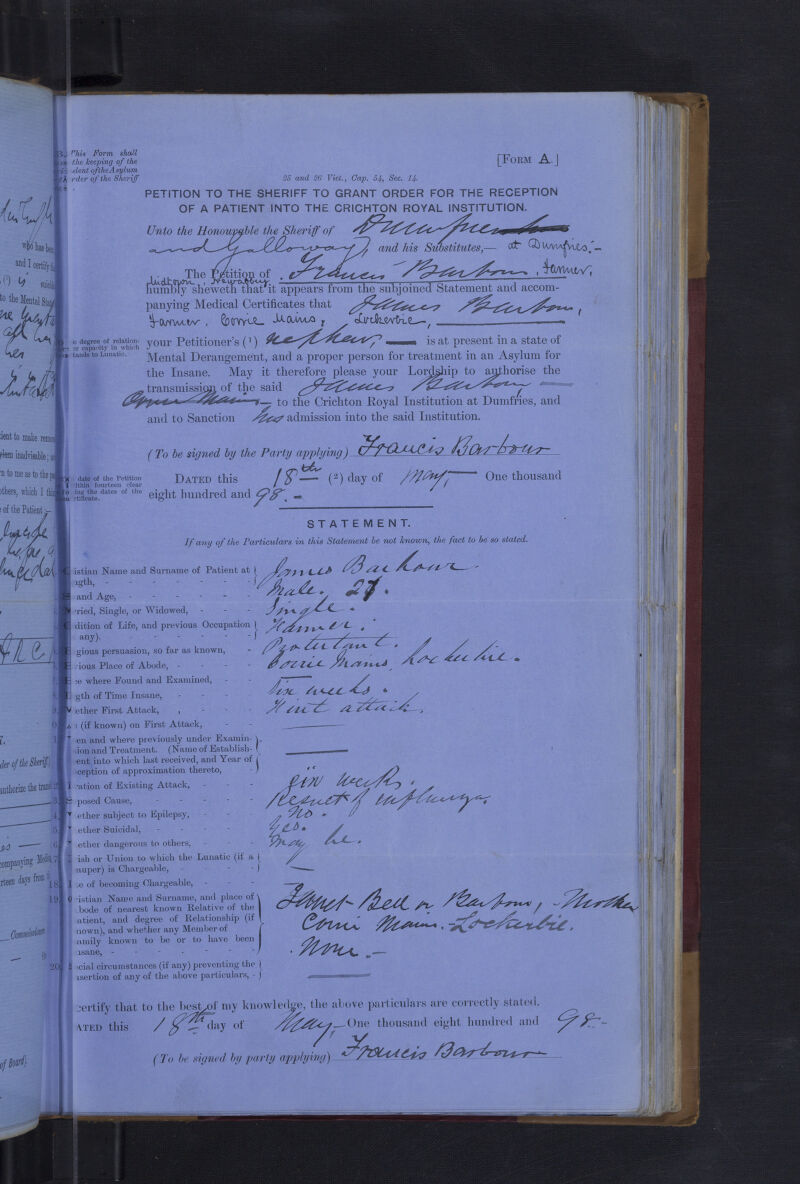 This Form shall
the keeping of the
of the Asylum
rder of the Sheriff
[FORM A.]
25 and 26 Vict., Cap. 54, Sec. 14.
PETITION TO THE SHERIFF TO GRANT ORDER FOR THE RECEPTION
OF A PATIENT INTO THE CRICHTON ROYAL INSTITUTION.
Unto the Honourable the Sheriff of Dumfries
and Galloway, and his Substitutes,— at Dumfries:—
The Petition of Francis Barbour, Farmer,
Newabbey,
humbly sheweth that it appears from the subjoined Statement and accom-
panying Medical Certificates that James Barbour,
Farmer, Corrie Mains, Lockerbie,
degree of relation-
or capacity in which
tands to Lunatic.
your Petitioner's (¹) nephew, — is at present in a state of
Mental Derangement, and a proper person for treatment in an Asylum for
the Insane. May it therefore please your Lordship to authorise the
transmission of the said James Barbour, —
Corrie Mains — to the Crichton Royal Institution at Dumfries, and
and to Sanction his admission into the said Institution.
(To be signed by the Party applying) Francis Barbour
date of the Petition
ithin fourteen clear
ing the dates of the
rtificate.
DATED this 18th (²) day of May, — One thousand
eight hundred and 98. —
STATEMENT.
If any of the Particulars in this Statement be not known, the fact to be so stated.
istian Name and Surname of Patient at
ngth, James Barbour.
and Age, Male. 27.
ried, Single, or Widowed, Single.
dition of Life, and previous Occupation
any). Farmer.
igious persuasion, so far as known, Protestant.
vious Place of Abode, Corrie Mains, Lockerbie.
ce where Found and Examined,
gth of Time Insane, Six weeks.
ether First Attack, First attack.
(if known) on First Attack, —
en and where previously under Examin-
sion and Treatment. (Name of Establish-
ent into which last received, and Year of
ception of approximation thereto, —
ration of Existing Attack, Six weeks.
pposed Cause, Result of influenza.
ether subject to Epilepsy, No.
ether Suicidal, Yes.
ether dangerous to others, May be.
rish or Union to which the Lunatic (if a
auper) is Chargeable, —
18. te of becoming Chargeable, —
19. ristian Name and Surname, and place of
bode of nearest known Relative of the
atient, and degree of Relationship (if
nown), and whether any Member of
amily known to be or to have been
nsane, Janet Bell or Barbour, Mother
Corrie Mains. Lockerbie.
None. —
20. ecial circumstances (if any) preventing the
nsertion of any of the above particulars, —
certify that to the best of my knowledge, the above particulars are correctly stated.
ATED this 18th day of May, — One thousand eight hundred and 98. —
(To be signed by party applying) Francis Barbour